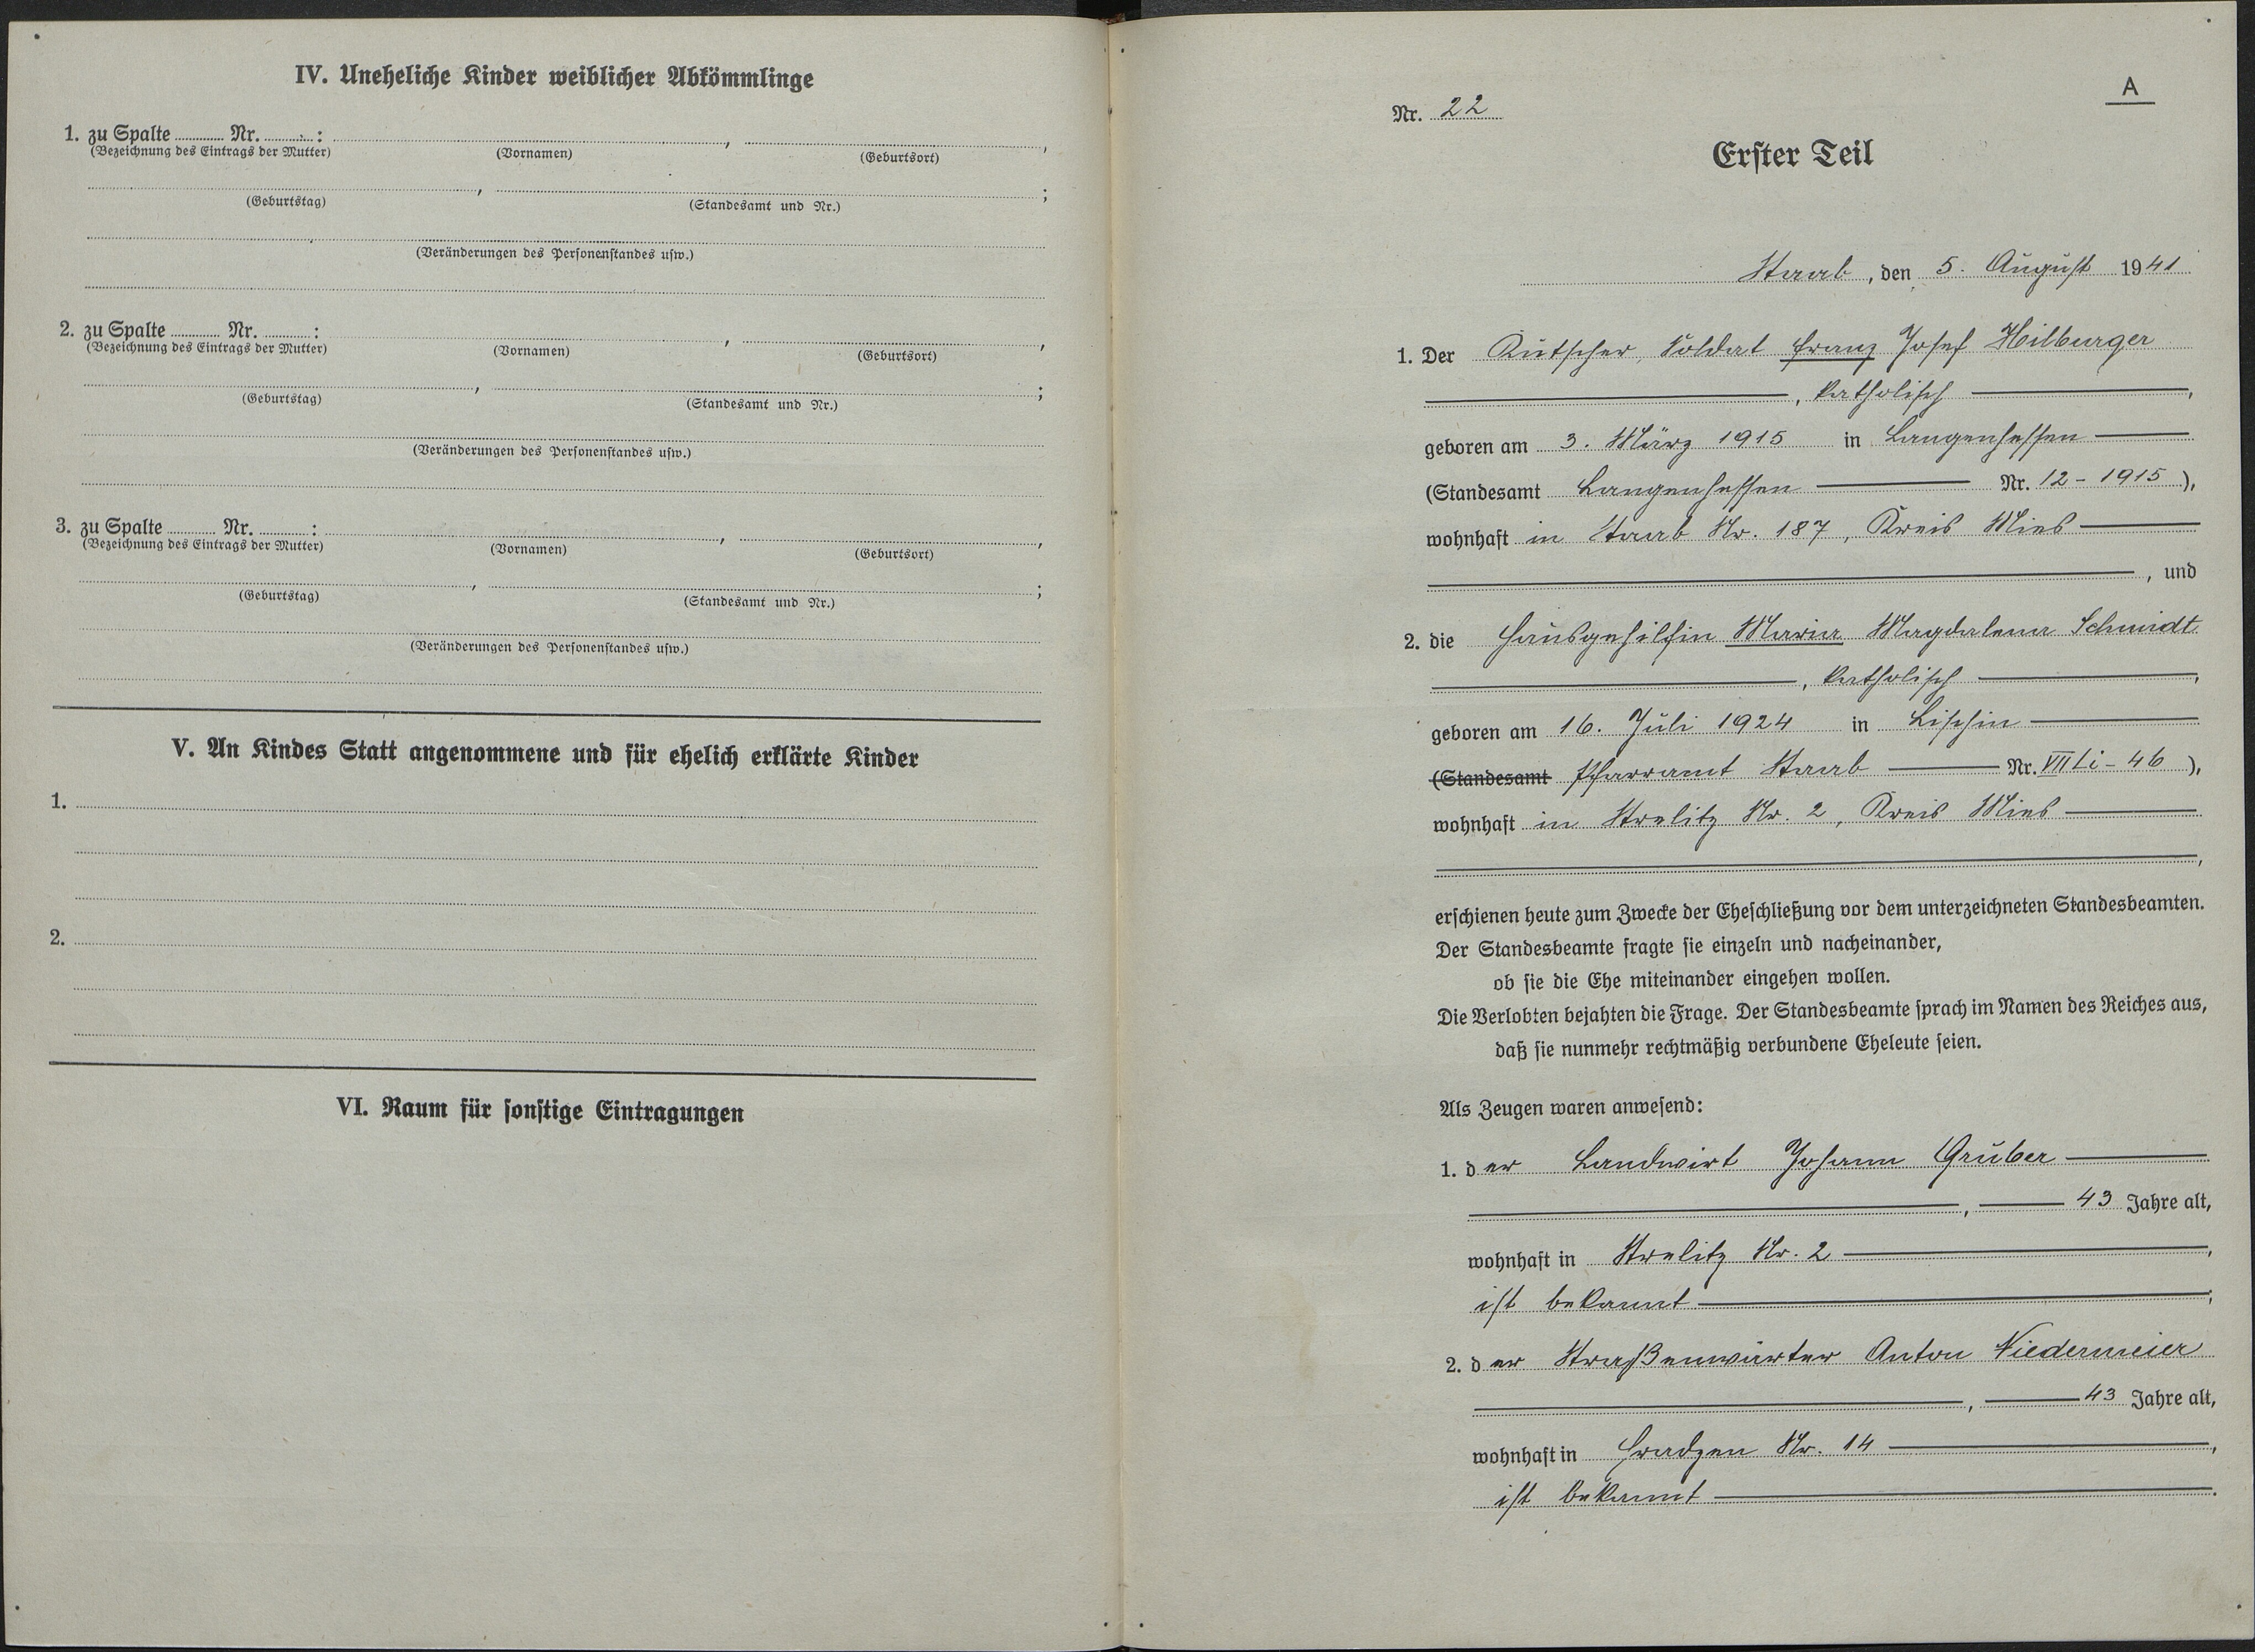 IV. Uneheliche Kinder weiblicher Abkömmlinge
1. zu Spalte ........ Nr. ........: ........, ........,
(Bezeichnung des Eintrags der Mutter) (Vornamen) (Geburtsort)
........, ........;
(Geburtstag) (Standesamt und Nr.)
(Veränderungen des Personenstandes usw.)
2. zu Spalte ........ Nr. ........: ........, ........,
(Bezeichnung des Eintrags der Mutter) (Vornamen) (Geburtsort)
........, ........;
(Geburtstag) (Standesamt und Nr.)
(Veränderungen des Personenstandes usw.)
3. zu Spalte ........ Nr. ........: ........, ........,
(Bezeichnung des Eintrags der Mutter) (Vornamen) (Geburtsort)
........, ........;
(Geburtstag) (Standesamt und Nr.)
(Veränderungen des Personenstandes usw.)
V. An Kindes Statt angenommene und für ehelich erklärte Kinder
1.
2.
VI. Raum für sonstige Eintragungen
A
Nr. 22
Erster Teil
Staab, den 5. August 1941
1. Der Kutscher, Soldat Franz Josef Hilburger
, katholisch ,
geboren am 3. März 1915 in Langenhessen
(Standesamt Langenhessen Nr. 12 - 1915),
wohnhaft in Staab Nr. 187, Kreis Mies
, und
2. die Hausgehilfin Maria Magdalena Schmidt
, katholisch ,
geboren am 16. Juli 1924 in Lischin
(Standesamt Pfarramt Staab Nr. VII Li - 46),
wohnhaft in Strelitz Nr. 2, Kreis Mies
,
erschienen heute zum Zwecke der Eheschließung vor dem unterzeichneten Standesbeamten.
Der Standesbeamte fragte sie einzeln und nacheinander,
ob sie die Ehe miteinander eingehen wollen.
Die Verlobten bejahten die Frage. Der Standesbeamte sprach im Namen des Reiches aus,
daß sie nunmehr rechtmäßig verbundene Eheleute seien.
Als Zeugen waren anwesend:
1. der Landwirt Johann Gruber
, 43 Jahre alt,
wohnhaft in Strelitz Nr. 2 ,
ist bekannt ;
2. der Straßenwärter Anton Niedermeier
, 43 Jahre alt,
wohnhaft in Hradzen Nr. 14 ,
ist bekannt .